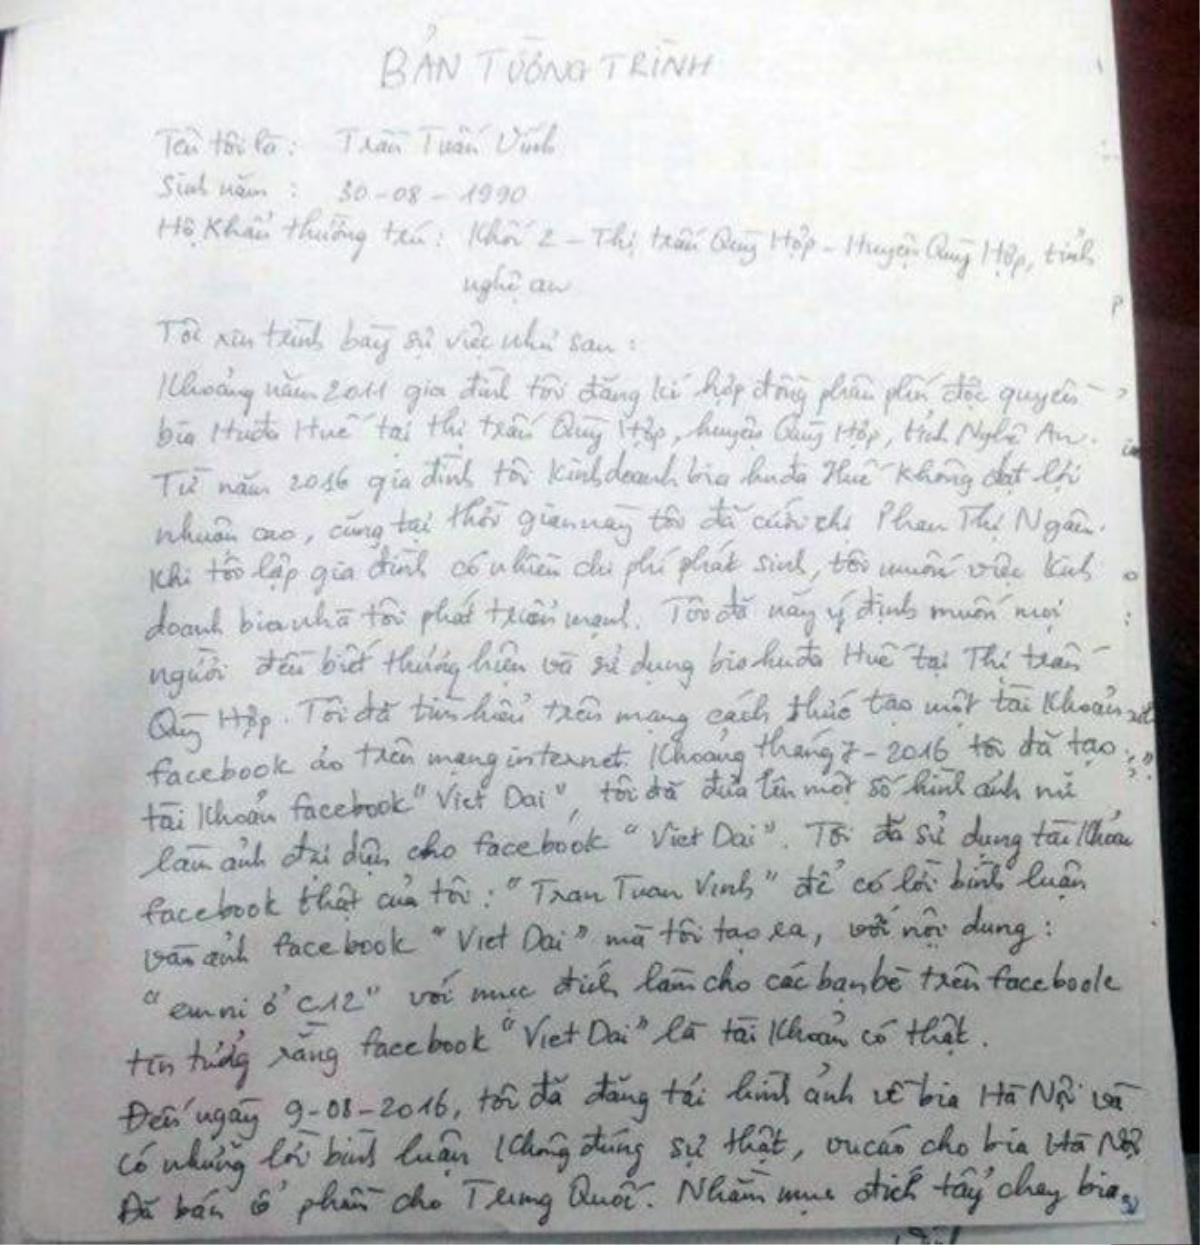 BẢN TƯỜNG TRÌNH
Tên tôi là: Trần Tuấn Vinh
Sinh năm: 30-08-1990
Hộ Khẩu thường trú: Khối 2 - Thị trấn Quỳ Hợp - Huyện Quỳ Hợp, tỉnh
nghệ an
Tôi xin trình bày sự việc như sau:
Khoảng năm 2011 gia đình tôi đăng kí hợp đồng phân phối độc quyền
bia Huda Huế tại thị trấn Quỳ Hợp, huyện Quỳ Hợp, tỉnh Nghệ An.
Từ năm 2016 gia đình tôi kinh doanh bia huda Huế không đạt lợi
nhuận cao, cũng tại thời gian này tôi đã cưới chị Phan Thị Ngân.
Khi tôi lập gia đình có nhiều chi phí phát sinh, tôi muốn việc kinh
doanh bia nhà tôi phát triển mạnh. Tôi đã nảy ý định muốn mọi
người đều biết thương hiệu và sử dụng bia huda Huế tại Thị trấn
Quỳ Hợp. Tôi đã tìm hiểu trên mạng cách thức tạo một tài khoản
facebook ảo trên mạng internet. Khoảng tháng 7-2016 tôi đã tạo
tài khoản facebook "Viet Dai", tôi đã đưa lên một số hình ảnh nữ
làm ảnh đại diện cho facebook "Viet Dai". Tôi đã sử dụng tài khoản
facebook thật của tôi: "Tran Tuan Vinh" để có lời bình luận
vào ảnh facebook "Viet Dai" mà tôi tạo ra, với nội dung:
"em ni ở C12" với mục đích làm cho các bạn bè trên facebook
tin tưởng rằng facebook "Viet Dai" là tài khoản có thật.
Đến ngày 9-08-2016, tôi đã đăng tải hình ảnh về bia Hà Nội và
có những lời bình luận không đúng sự thật, vu cáo cho bia Hà Nội
Đã bán cổ phần cho Trung Quốc. Nhằm mục đích tẩy chay bia